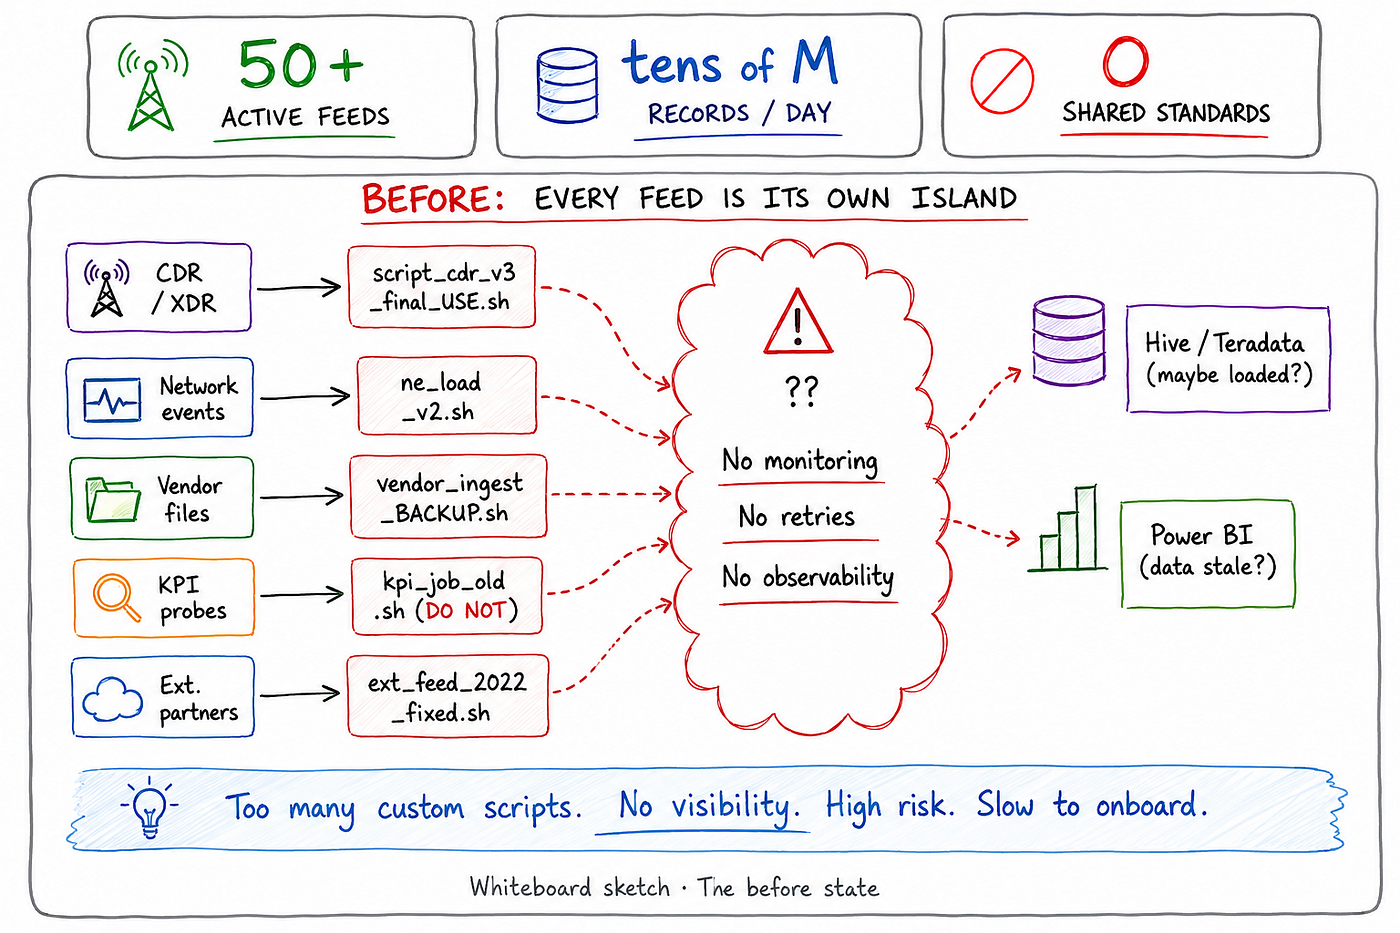 50+
ACTIVE FEEDS
tens of M
RECORDS / DAY
0
SHARED STANDARDS
BEFORE: EVERY FEED IS ITS OWN ISLAND
CDR
/ XDR
script_cdr_v3
_final_USE.sh
Network
events
ne_load
_v2.sh
Vendor
files
vendor_ingest
_BACKUP.sh
KPI
probes
kpi_job_old
.sh (DO NOT)
Ext.
partners
ext_feed_2022
_fixed.sh
!
??
No monitoring
No retries
No observability
Hive / Teradata
(maybe loaded?)
Power BI
(data stale?)
Too many custom scripts. No visibility. High risk. Slow to onboard.
Whiteboard sketch · The before state